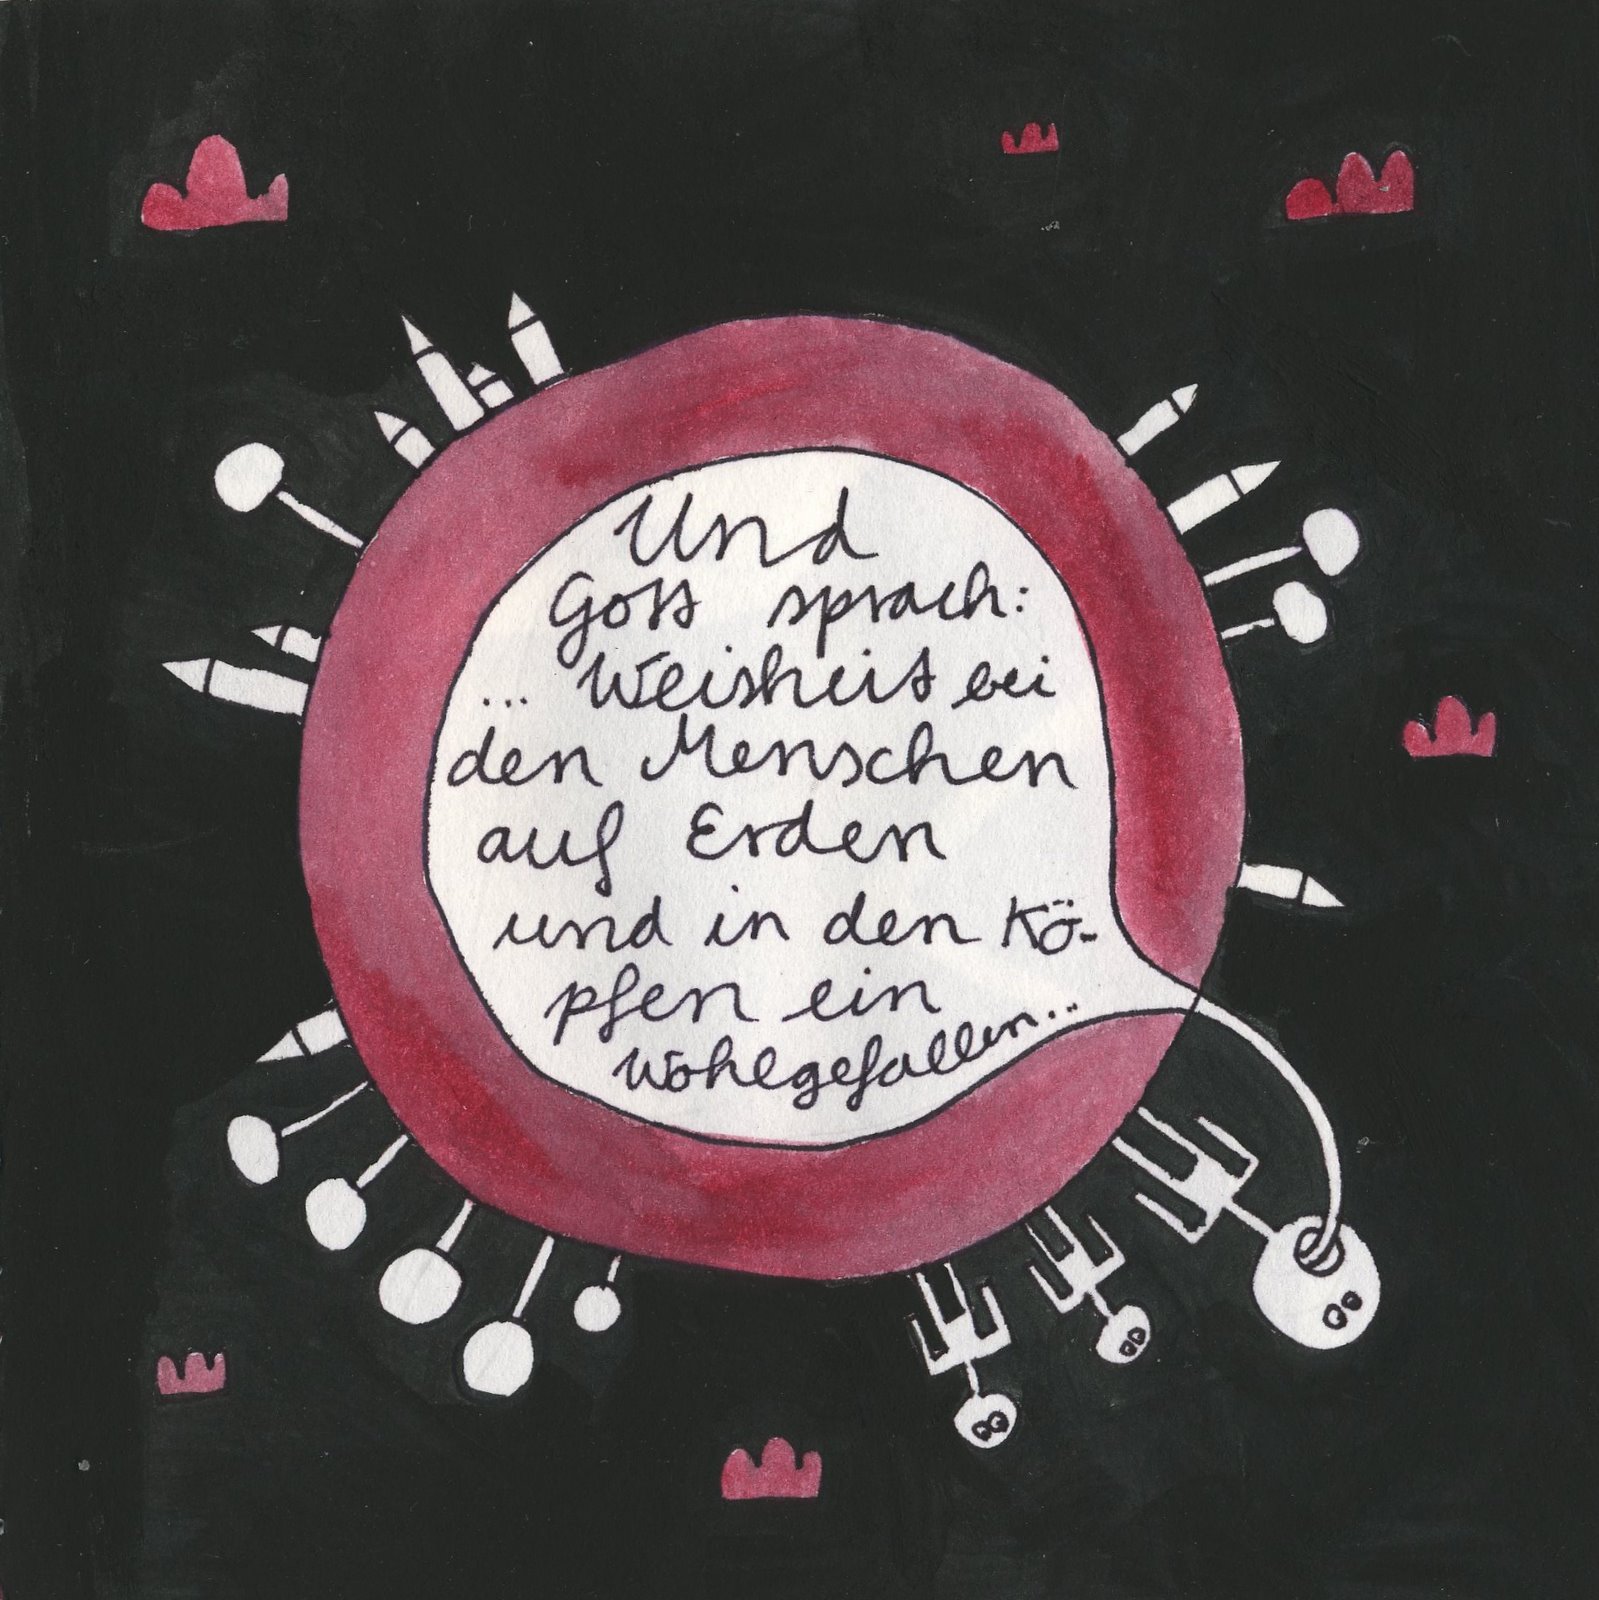 Und
Gott sprach:
... Weisheit bei
den Menschen
auf Erden
und in den Kö-
pfen ein
Wohlgefallen...